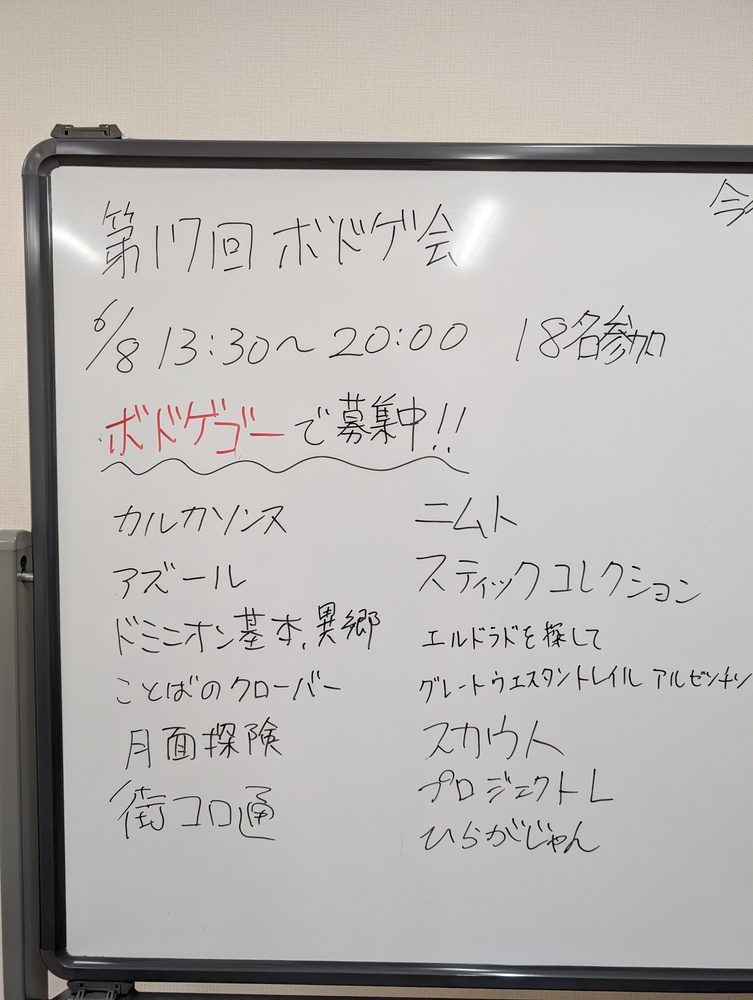 第17回 ボドゲ会
6/8 13:30～20:00 18名参加
ボドゲゴーで募集中!!
カルカソンヌ
アズール
ドミニオン基本,異郷
ことばのクローバー
月面探険
街コロ通
ニムト
スティックコレクション
エルドラドを探して
グレートウエスタントレイル アルゼンチン
スカウト
プロジェクトL
ひらがじゃん